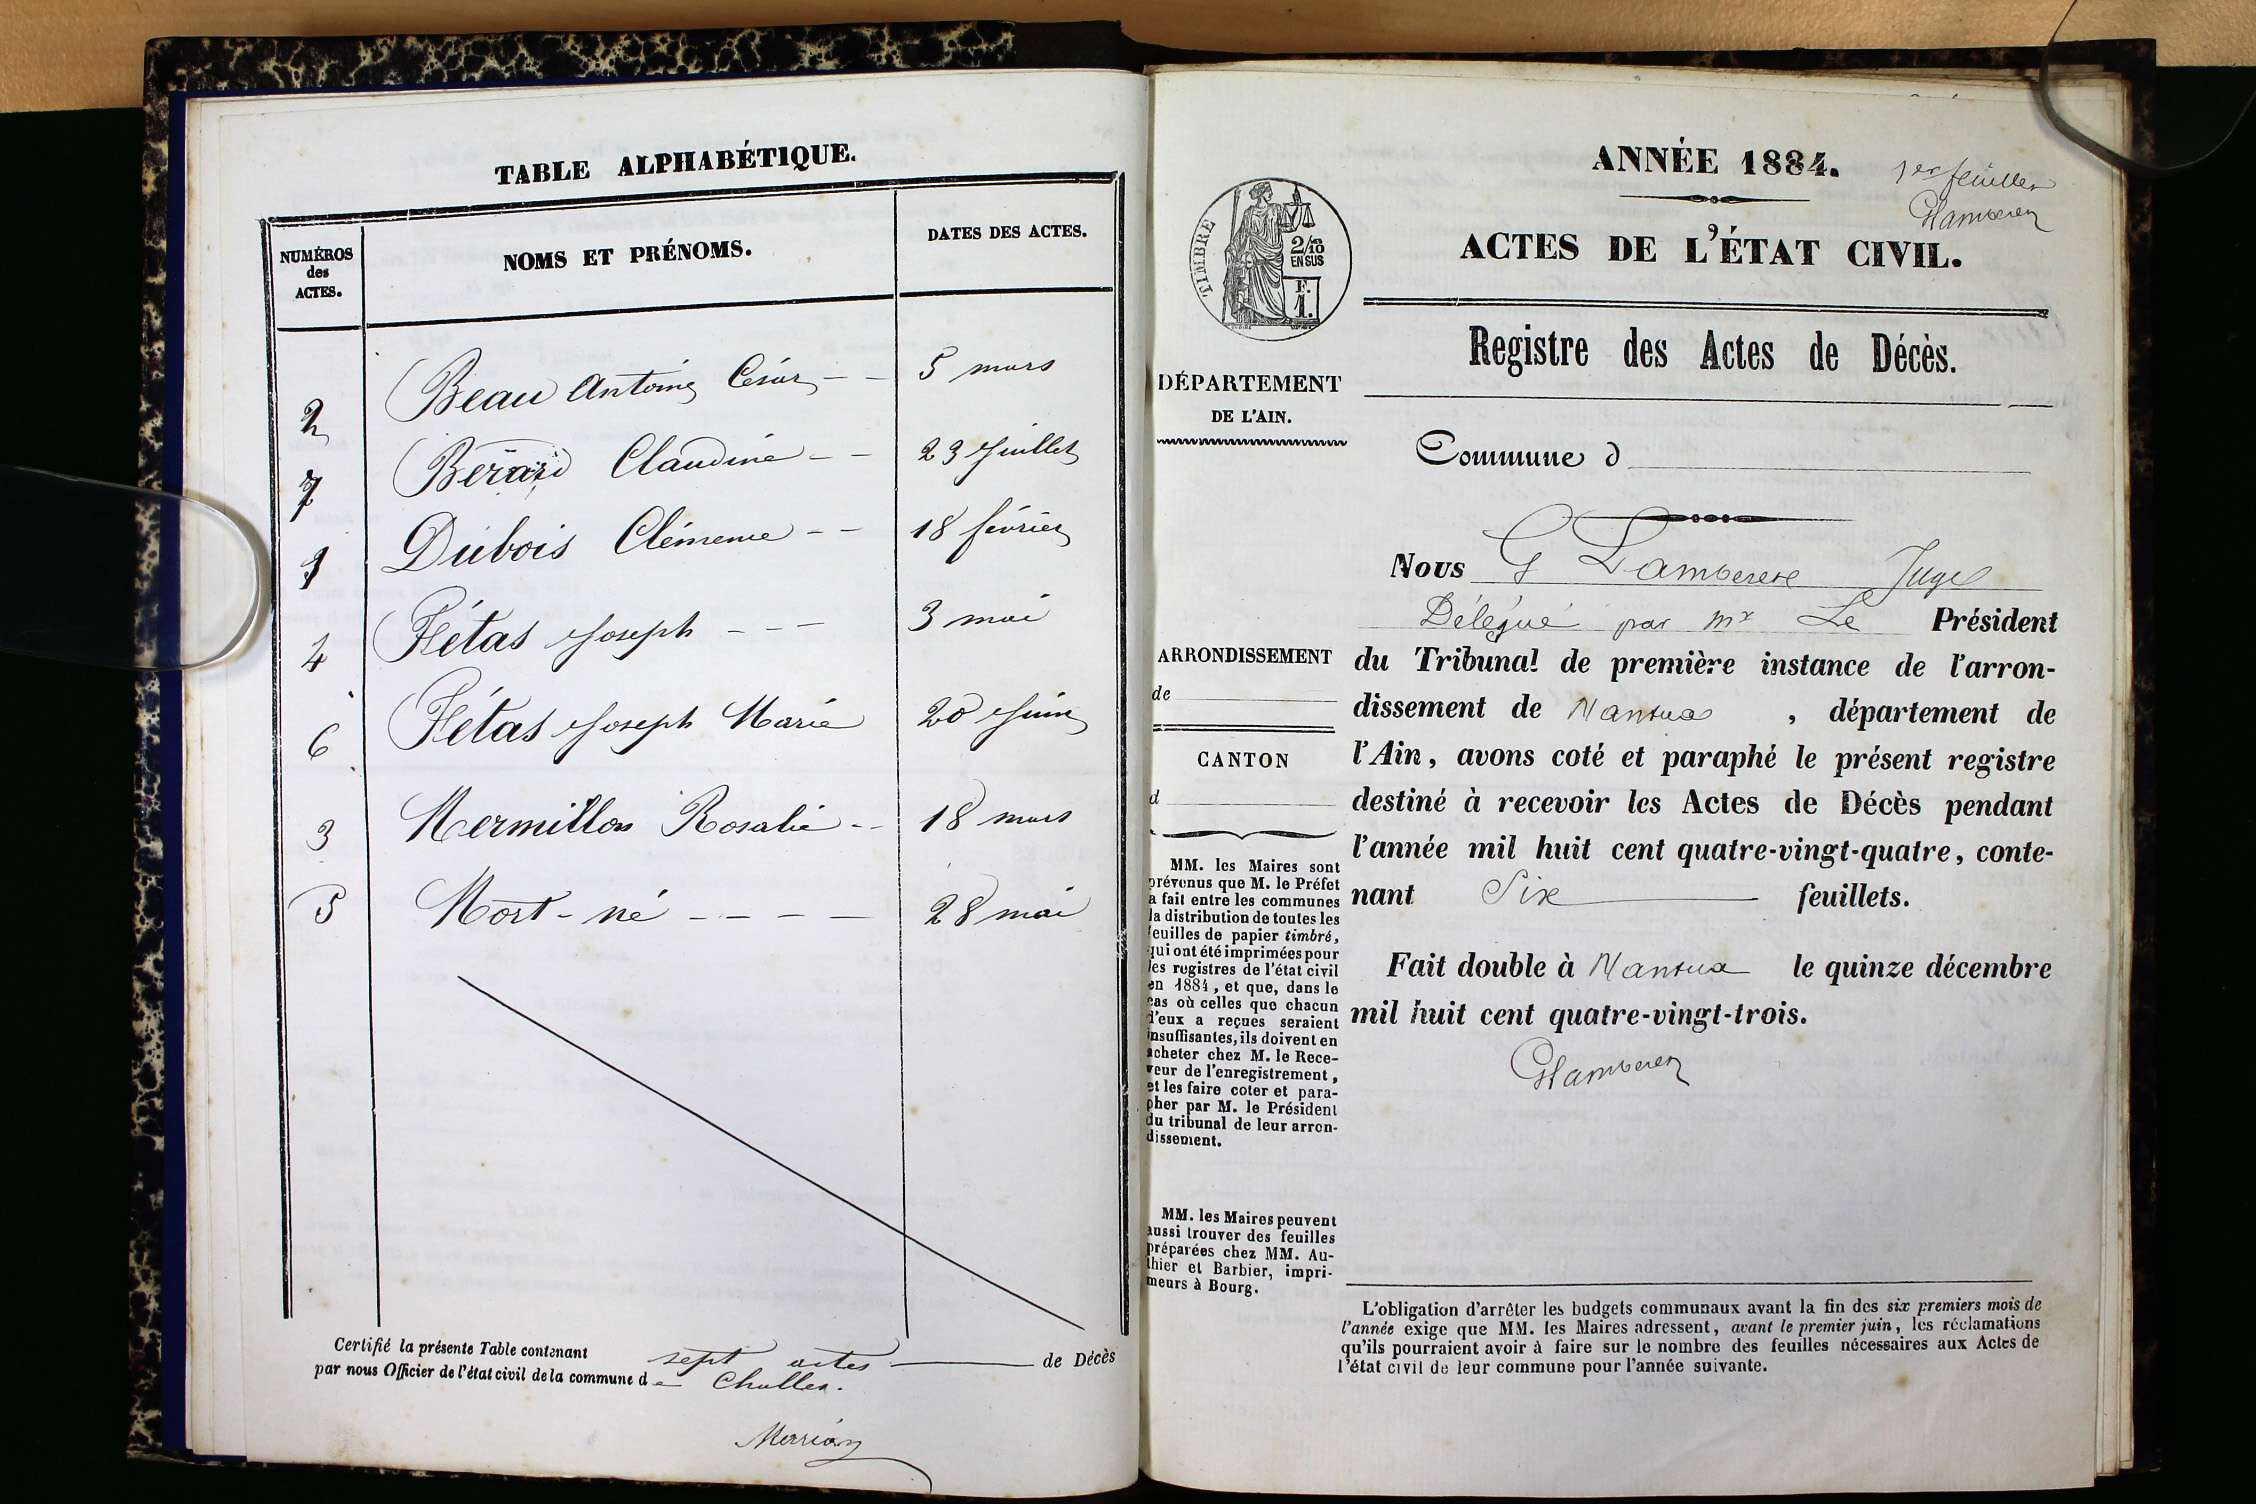 TABLE ALPHABÉTIQUE.
NUMÉROS
des
ACTES.
NOMS ET PRÉNOMS.
DATES DES ACTES.
2 Beau Antoine César - - 5 mars
7 Bérard Claudine - - 23 Juillet
1 Dubois Clémence - - 18 février
4 Flétas Joseph - - - 3 mai
6 Flétas Joseph Marie 20 Juin
3 Mermillon Rosalie - - 18 mars
5 Mort-né - - - - 28 mai
Certifié la présente Table contenant sept actes de Décès
par nous Officier de l'état civil de la commune de
ANNÉE 1884.
1er feuillet
ACTES DE L'ÉTAT CIVIL.
TIMBRE
2/10 EN SUS
F.
1.
Registre des Actes de Décès.
DÉPARTEMENT
DE L'AIN.
Commune d
Nous G Juge
Délégué par Mr Le Président
du Tribunal de première instance de l'arron-
dissement de Nantua, département de
l'Ain, avons coté et paraphé le présent registre
destiné à recevoir les Actes de Décès pendant
l'année mil huit cent quatre-vingt-quatre, conte-
nant Six feuillets.
Fait double à Nantua le quinze décembre
mil huit cent quatre-vingt-trois.
ARRONDISSEMENT
de
CANTON
d
MM. les Maires sont
prévenus que M. le Préfet
a fait entre les communes
la distribution de toutes les
feuilles de papier timbré,
qui ont été imprimées pour
les registres de l'état civil
en 1884, et que, dans le
cas où celles que chacun
d'eux a reçues seraient
insuffisantes, ils doivent en
acheter chez M. le Rece-
veur de l'enregistrement,
et les faire coter et para-
pher par M. le Président
du tribunal de leur arron-
dissement.
MM. les Maires peuvent
aussi trouver des feuilles
préparées chez MM. Au-
thier et Barbier, impri-
meurs à Bourg.
L'obligation d'arrêter les budgets communaux avant la fin des six premiers mois de
l'année exige que MM. les Maires adressent, avant le premier juin, les réclamations
qu'ils pourraient avoir à faire sur le nombre des feuilles nécessaires aux Actes de
l'état civil de leur commune pour l'année suivante.